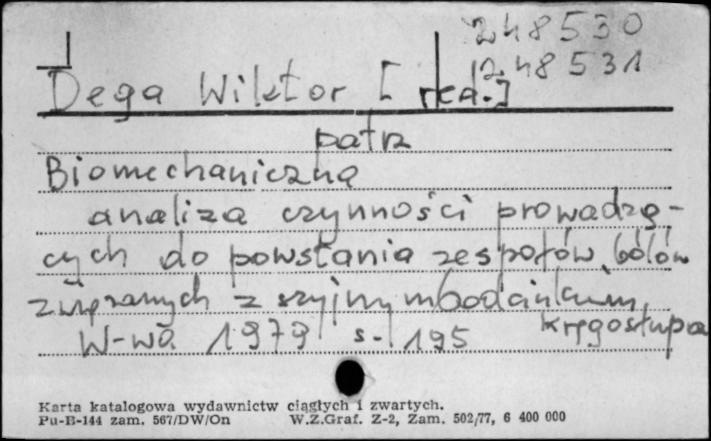 248530
248531
Dega Wiktor [red.]
patrz
Biomechaniczna
analiza czynności prowadzą-
cych do powstania zespołów bólów
związanych z szyjnym odcinkiem
kręgosłupa
W-wa 1979 s. 195
Karta katalogowa wydawnictw ciągłych i zwartych.
Pu-B-144 zam. 567/DW/On W.Z.Graf. Z-2, Zam. 502/77, 6 400 000